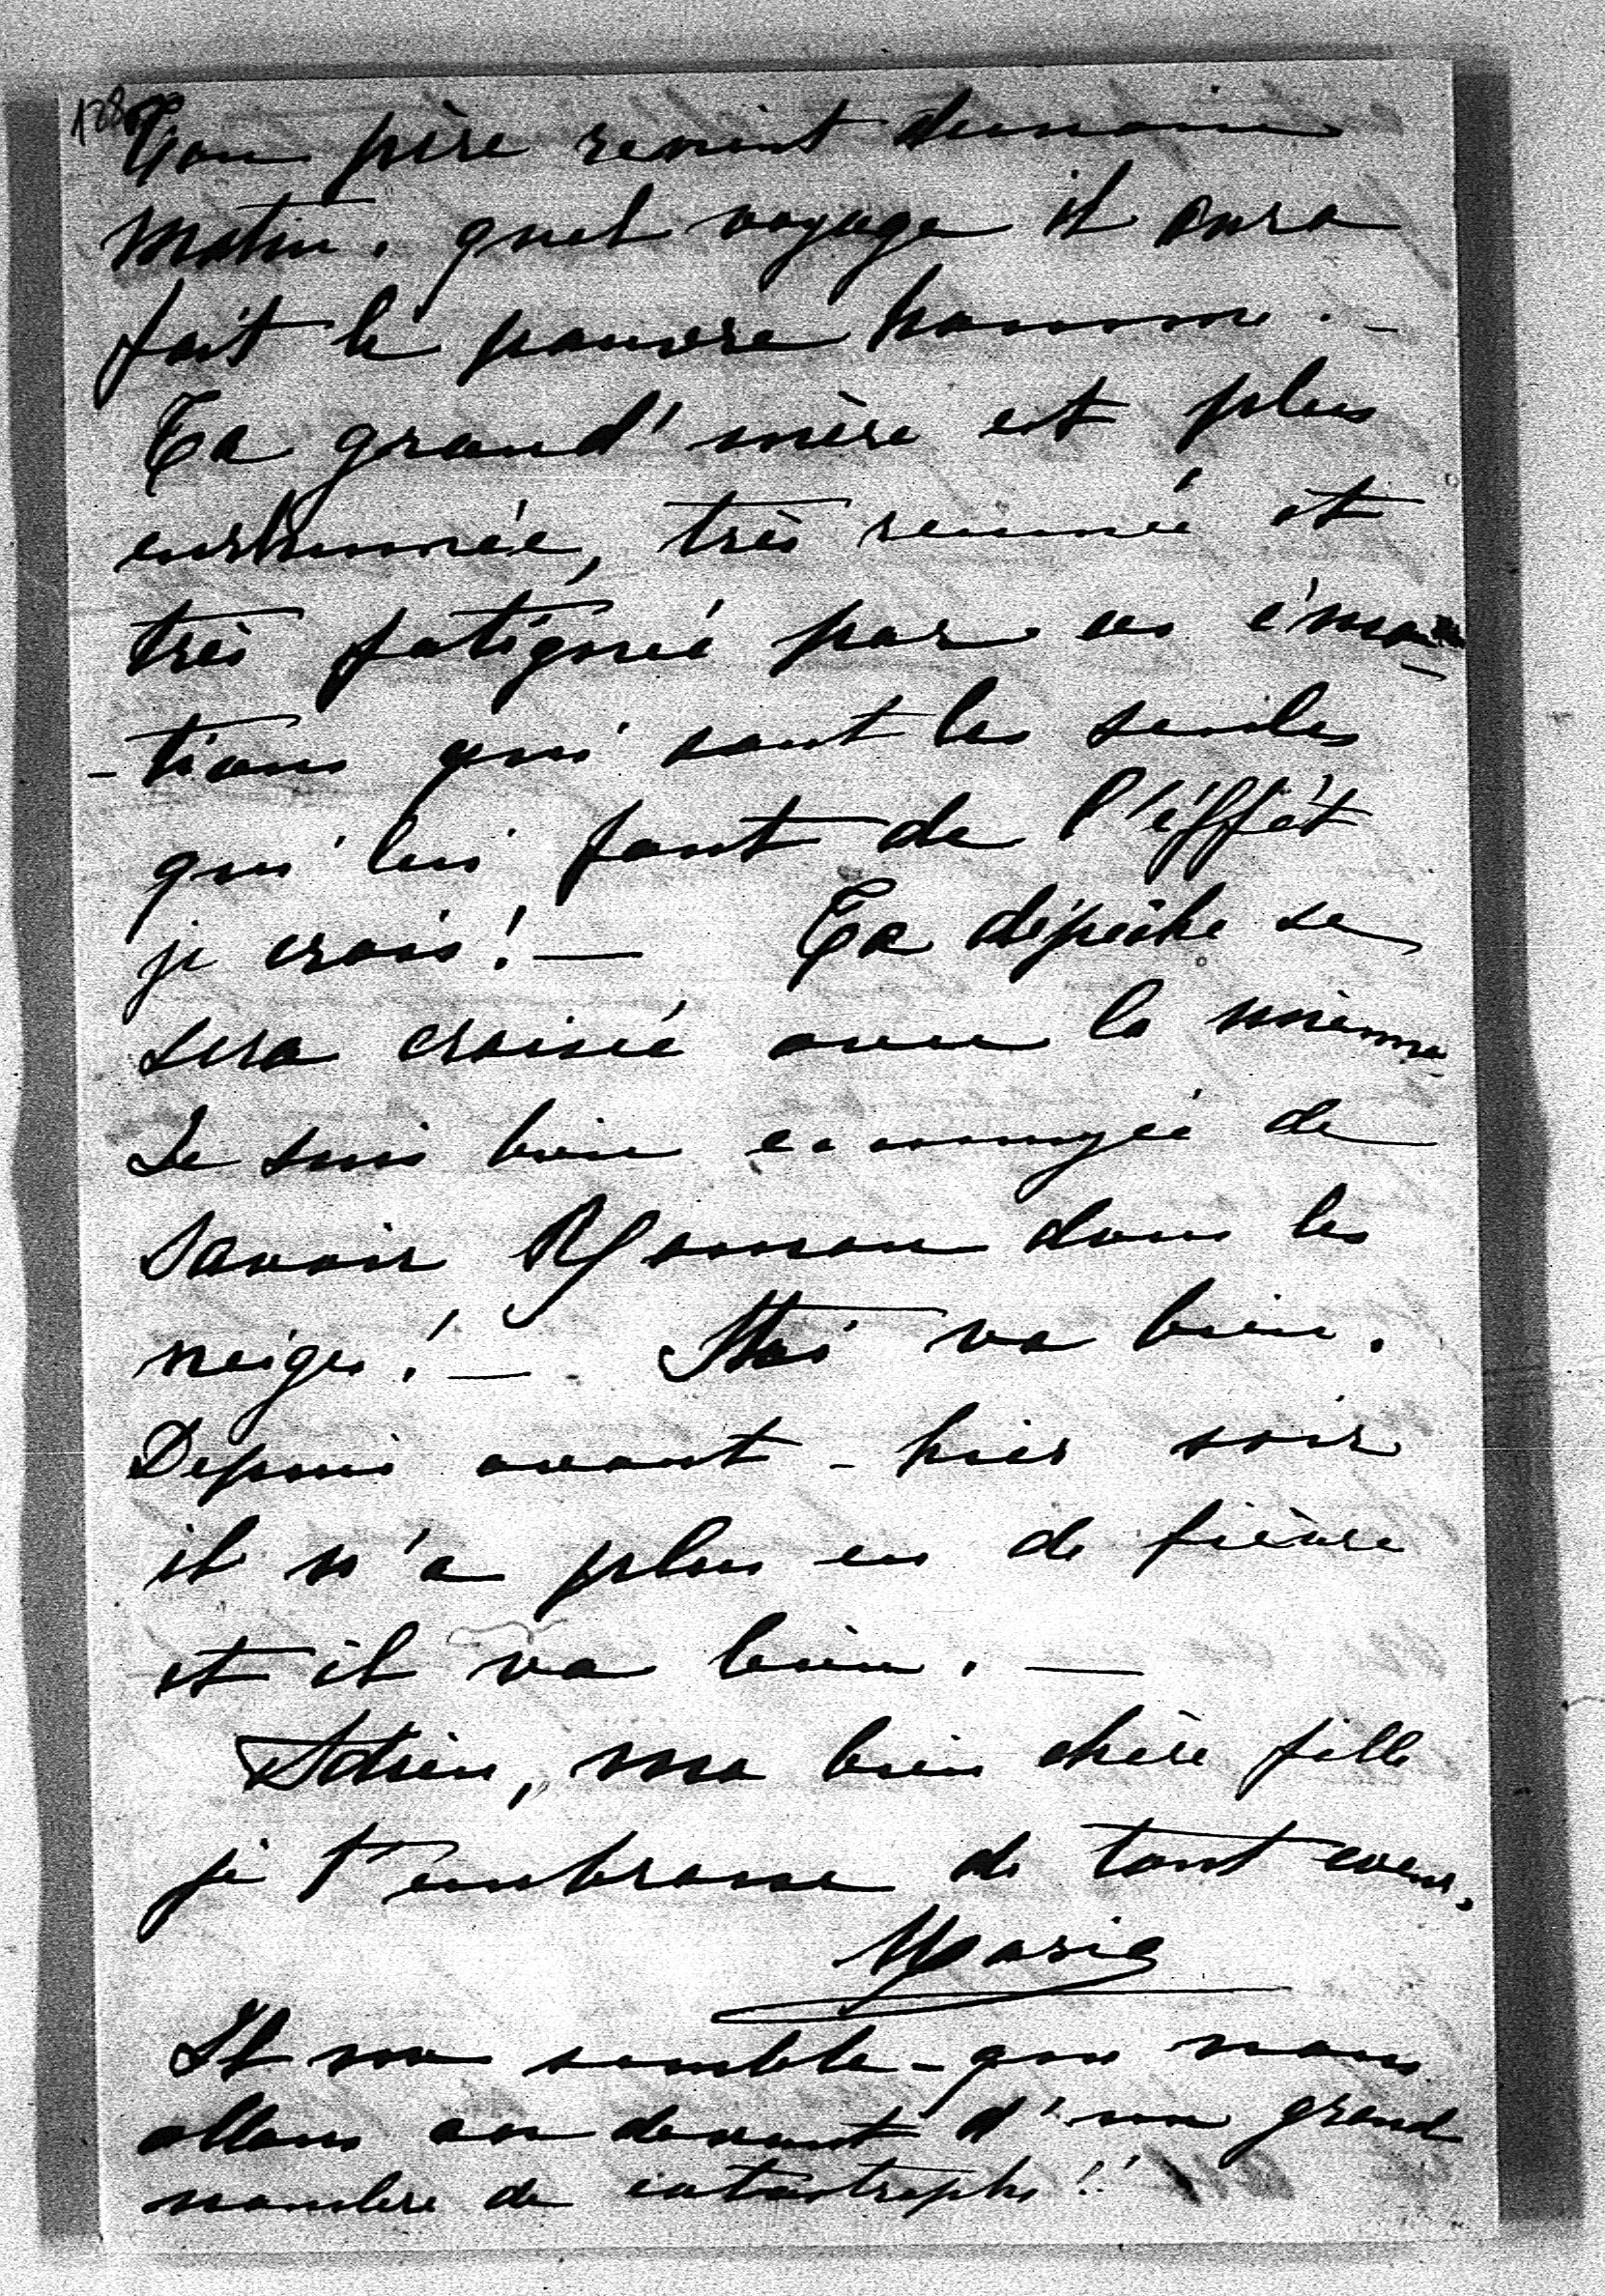 128
Ton père revient demain
matin. quel voyage il aura
fait le pauvre homme. _
Ta grand'mère est plus
enrhumée, très remuée et
très fatiguée par ces émo
-tions qui sont les seules
qui lui font de l'éffét
je crois! — Ta dépêche se
sera croisée avec la mienne
Je suis bien ennuyée de
savoir dans les
neiges! — va bien.
Depuis avant-hier soir
il n'a plus eu de fièvre
et il va bien. —
Adieu, ma bien chère fille
je t'embrasse de tout cœur.
Marie
Il me semble que nous
allons au devant d'un grand
nombre de catastrophes!!